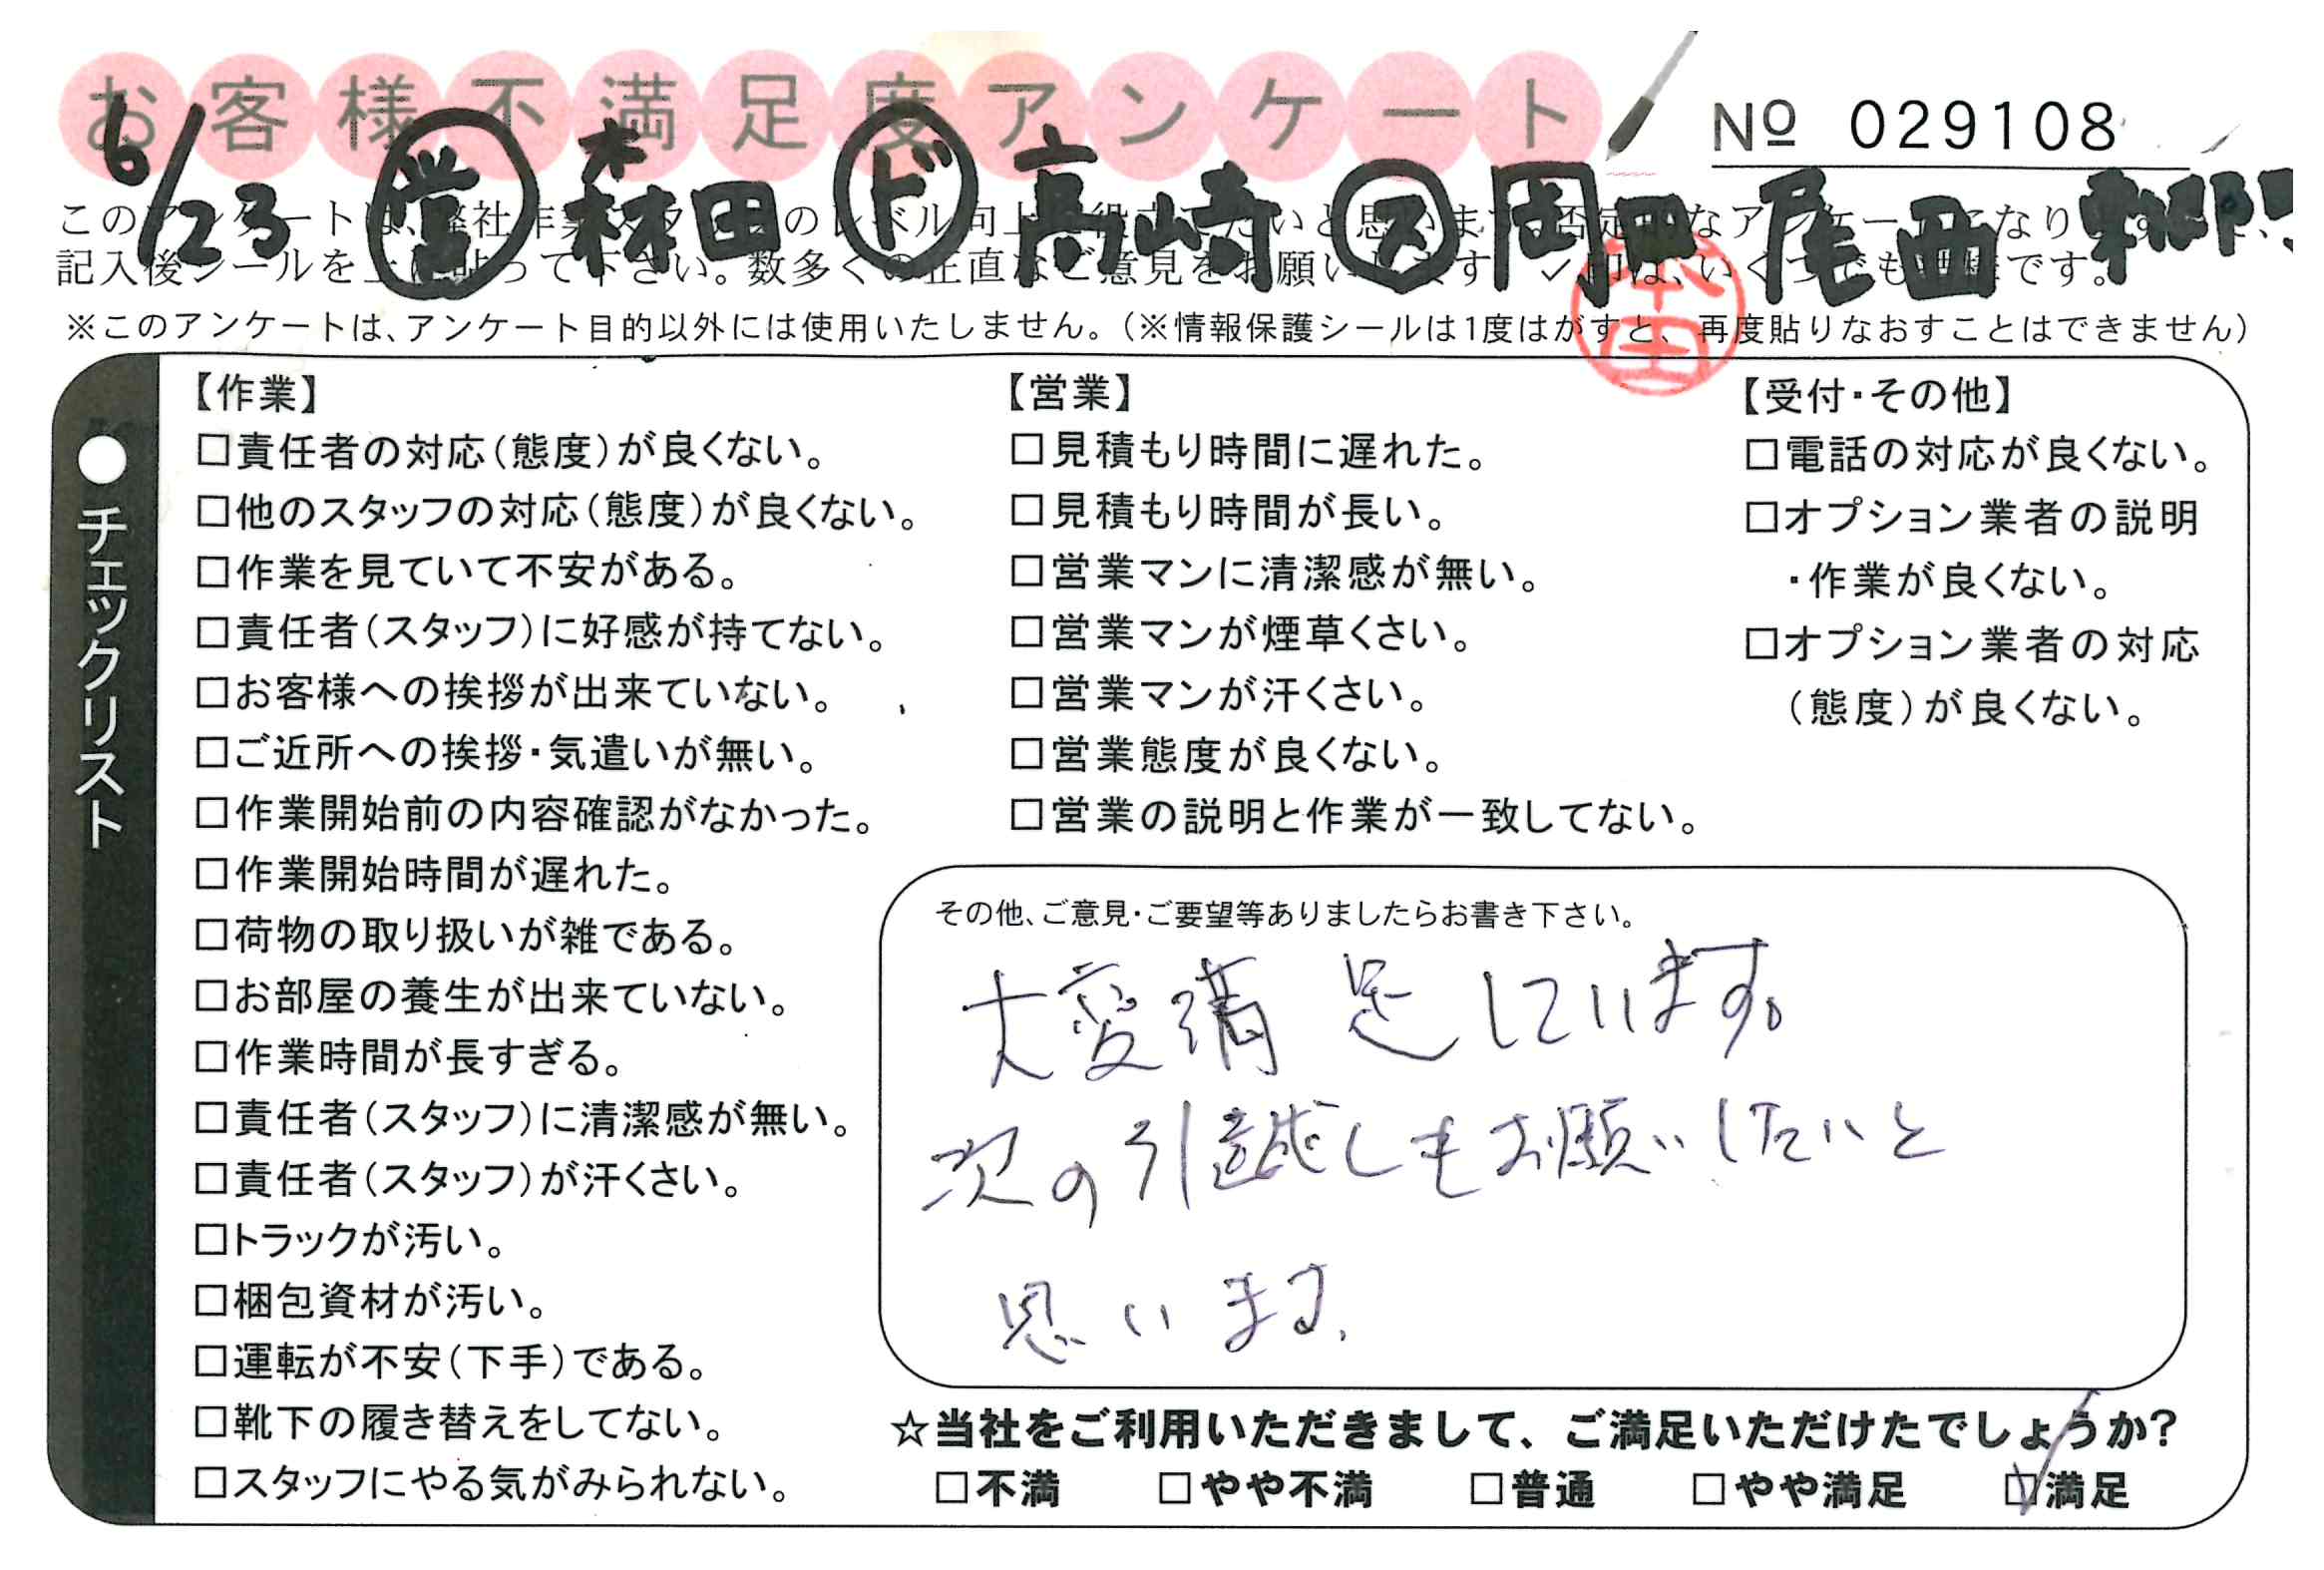 お客様不満足度アンケート
№ 029108
6/23 営 森田 ド 高崎 ス 岡田 尾西
このアンケートは、弊社作業スタッフのレベル向上に役立てたいと思います。否定的なアンケートになりますが、
記入後シールを上に貼って下さい。数多くの正直なご意見をお願いします。✓印は、いくつでも結構です。
※このアンケートは、アンケート目的以外には使用いたしません。(※情報保護シールは1度はがすと、再度貼りなおすことはできません)
●チェックリスト
【作業】
□責任者の対応(態度)が良くない。
□他のスタッフの対応(態度)が良くない。
□作業を見ていて不安がある。
□責任者(スタッフ)に好感が持てない。
□お客様への挨拶が出来ていない。
□ご近所への挨拶・気遣いが無い。
□作業開始前の内容確認がなかった。
□作業開始時間が遅れた。
□荷物の取り扱いが雑である。
□お部屋の養生が出来ていない。
□作業時間が長すぎる。
□責任者(スタッフ)に清潔感が無い。
□責任者(スタッフ)が汗くさい。
□トラックが汚い。
□梱包資材が汚い。
□運転が不安(下手)である。
□靴下の履き替えをしてない。
□スタッフにやる気がみられない。
【営業】
□見積もり時間に遅れた。
□見積もり時間が長い。
□営業マンに清潔感が無い。
□営業マンが煙草くさい。
□営業マンが汗くさい。
□営業態度が良くない。
□営業の説明と作業が一致してない。
【受付・その他】
□電話の対応が良くない。
□オプション業者の説明
・作業が良くない。
□オプション業者の対応
(態度)が良くない。
その他、ご意見・ご要望等ありましたらお書き下さい。
大変満足しています。
次の引越しもお願いしたいと
思います.
☆当社をご利用いただきまして、ご満足いただけたでしょうか?
□不満 □やや不満 □普通 □やや満足 ☑満足